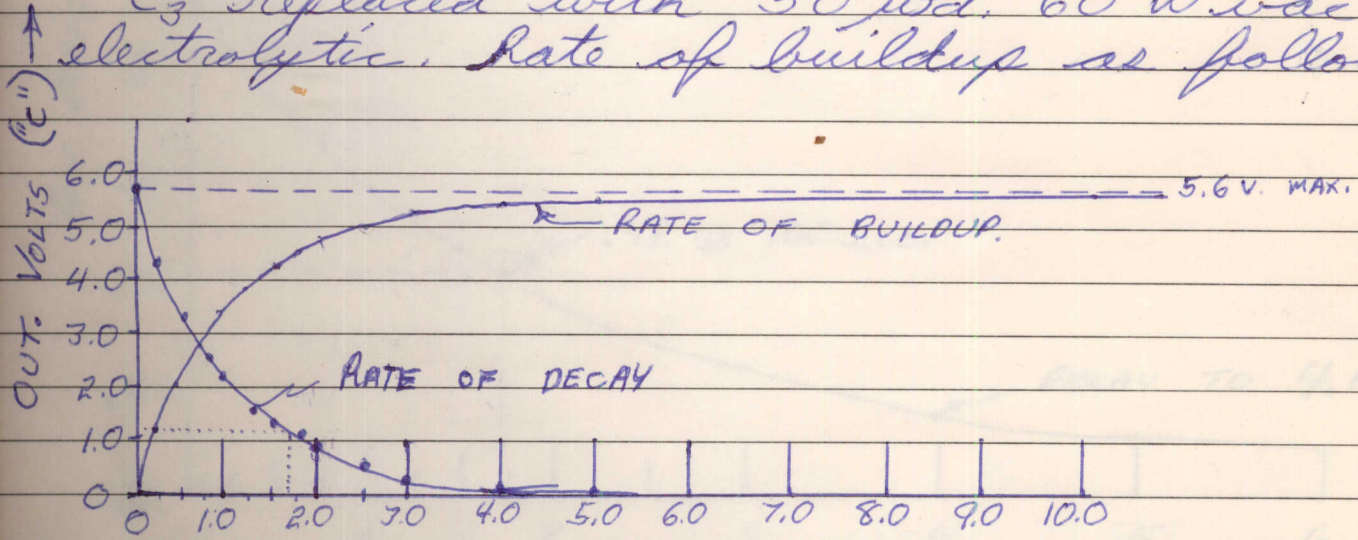 C3 replaced with 50 mfd. 60 W vac
electrolytic. Rate of buildup as follo
OUT. VOLTS ("C") →
6.0
5.6 V. MAX.
5.0
RATE OF BUILDUP.
4.0
3.0
2.0
RATE OF DECAY
1.0
0
0 1.0 2.0 3.0 4.0 5.0 6.0 7.0 8.0 9.0 10.0